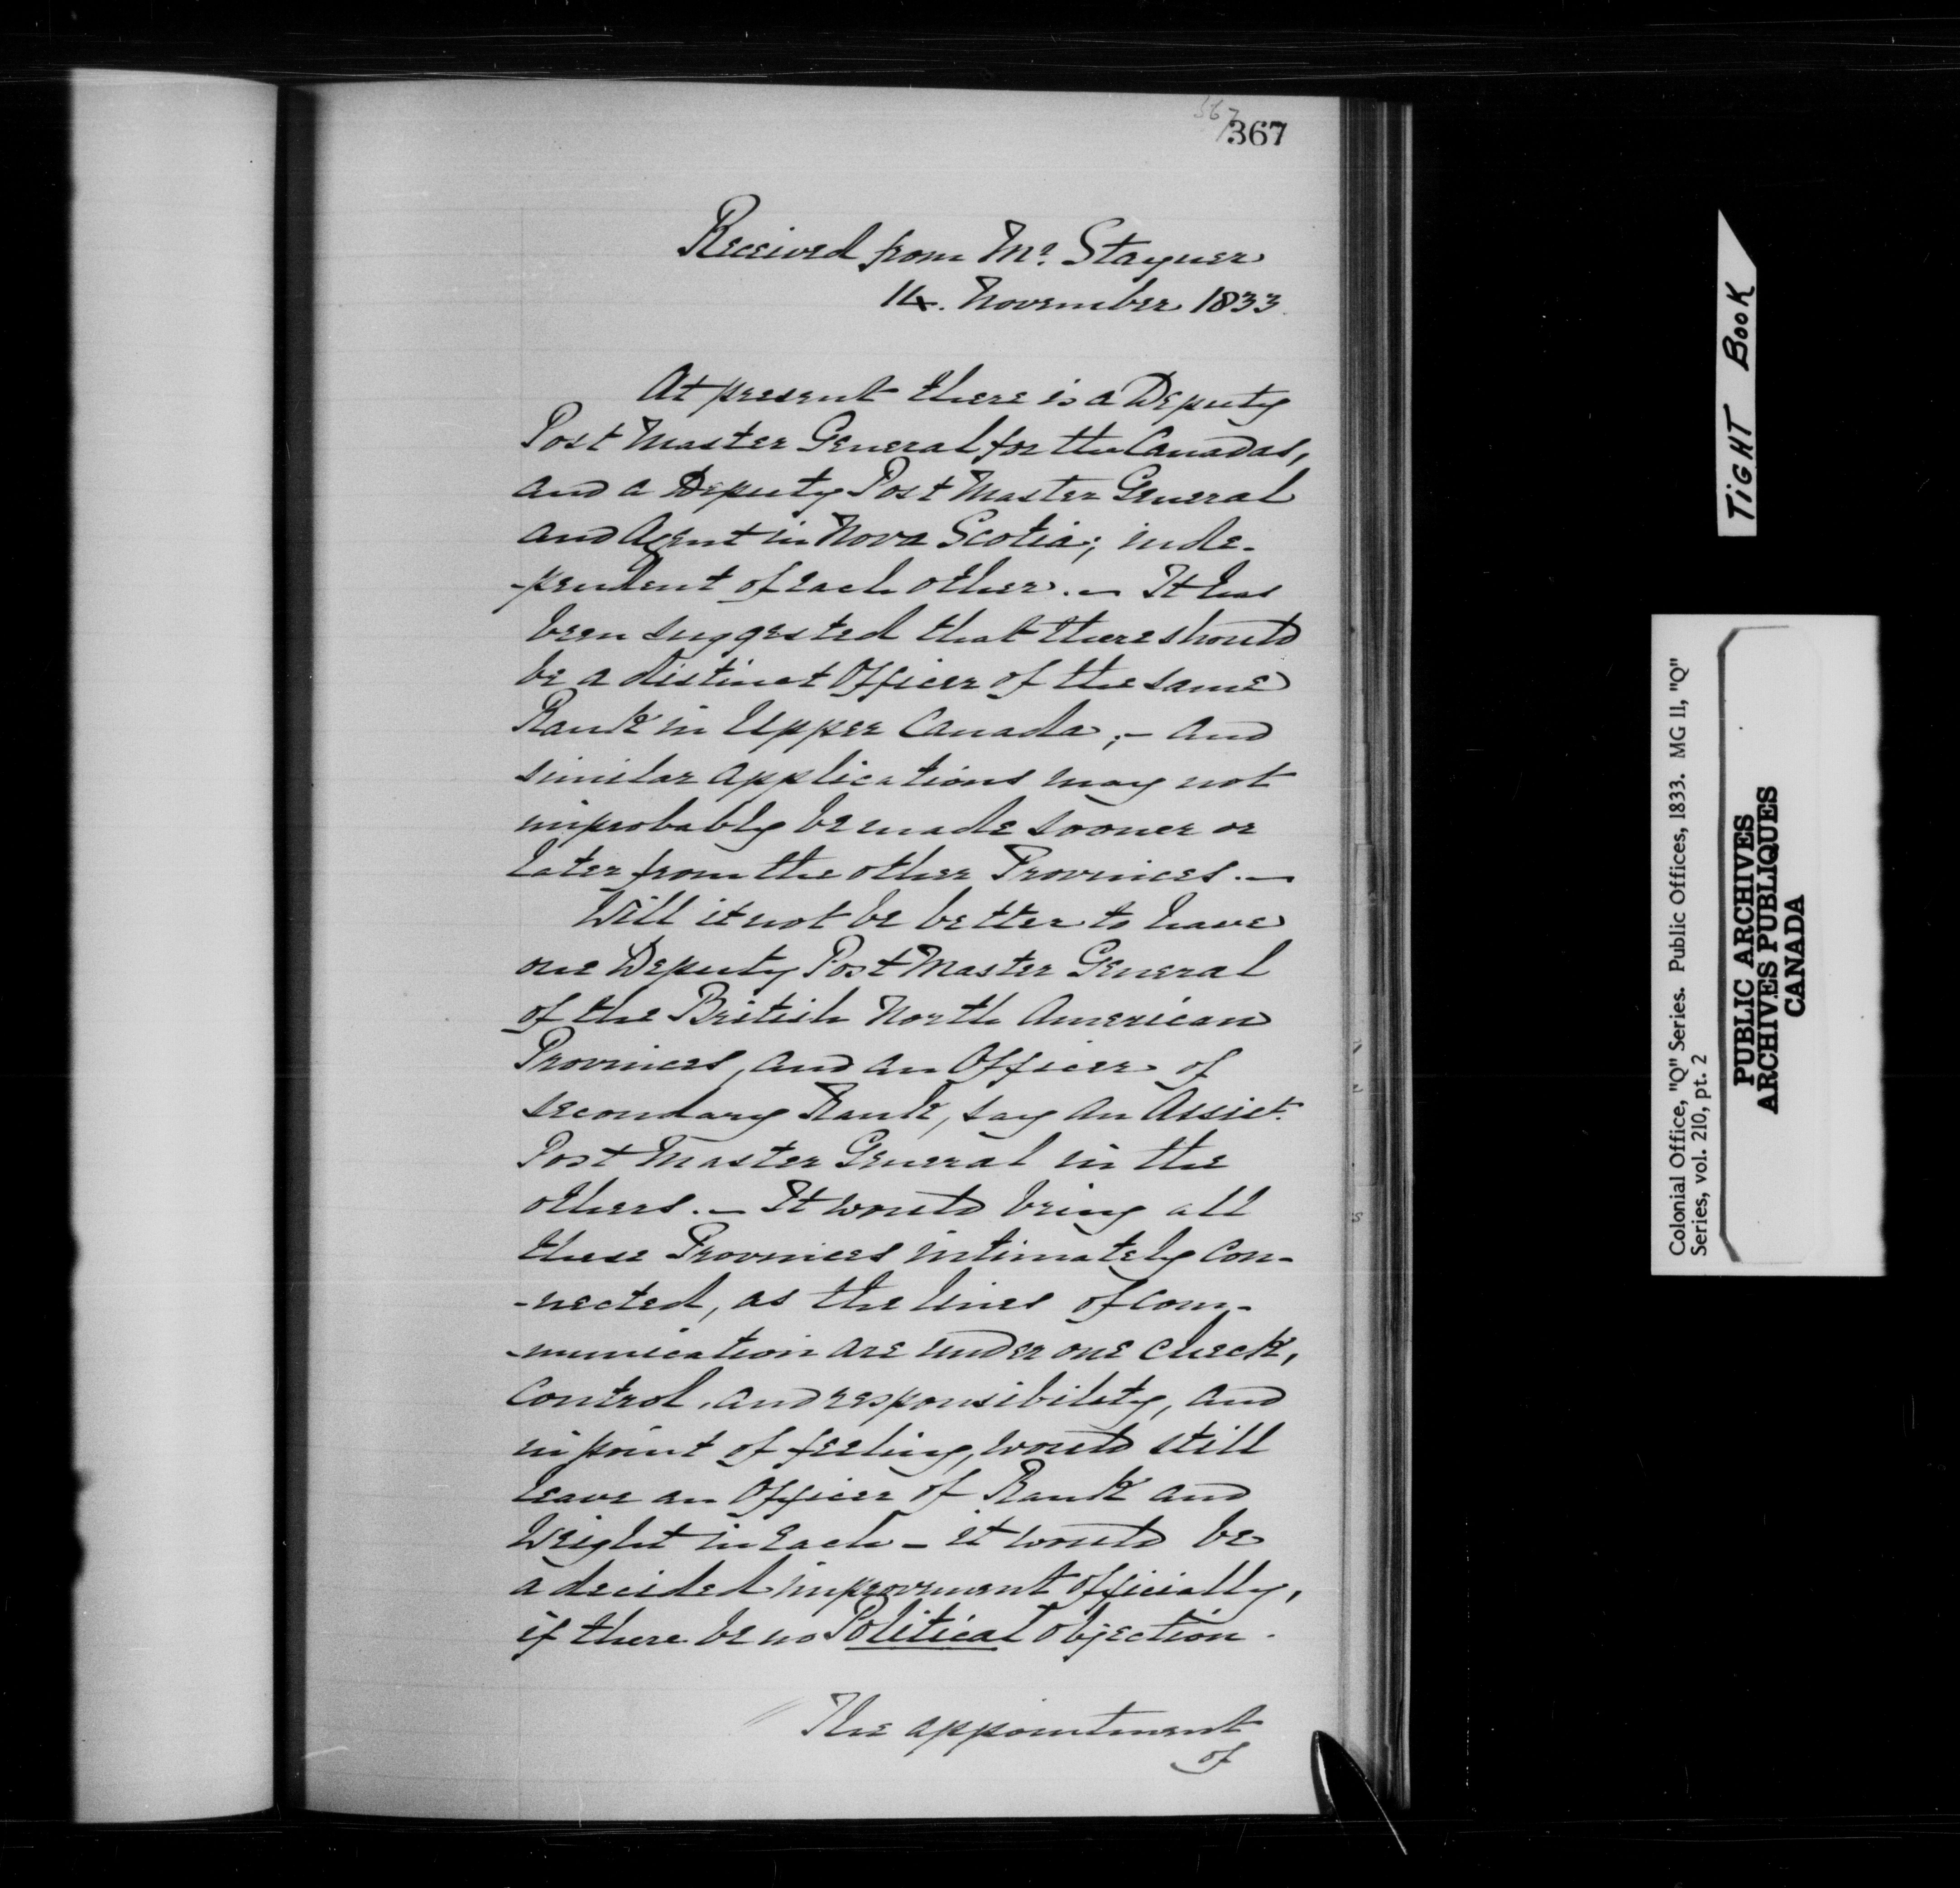 367
367
Received from Mr. Stayner
14. November 1833.
At present there is a Deputy
Post Master General for the Canadas,
and a Deputy Post Master General
and Agent in Nova Scotia; inde-
-pendent of each other. — It has
been suggested that there should
be a distinct Officer of the same
Rank in Upper Canada; — and
similar applications may not
improbably be made sooner or
later from the other Provinces. —
Will it not be better to have
one Deputy Post Master General
of the British North American
Provinces, and an Officer of
secondary Rank, say an Assist.
Post Master General in the
others. — It would bring all
these Provinces intimately con-
-nected, as the lines of com-
-munication are under one check,
control, and responsibility, and
in point of feeling, would still
leave an Officer of Rank and
Weight in Each — it would be
a decided improvement officially,
if there be no Political objection.
The appointment
of
TIGHT BOOK
Colonial Office, "Q" Series. Public Offices, 1833. MG 11, "Q"
Series, vol. 210, pt. 2
PUBLIC ARCHIVES
ARCHIVES PUBLIQUES
CANADA